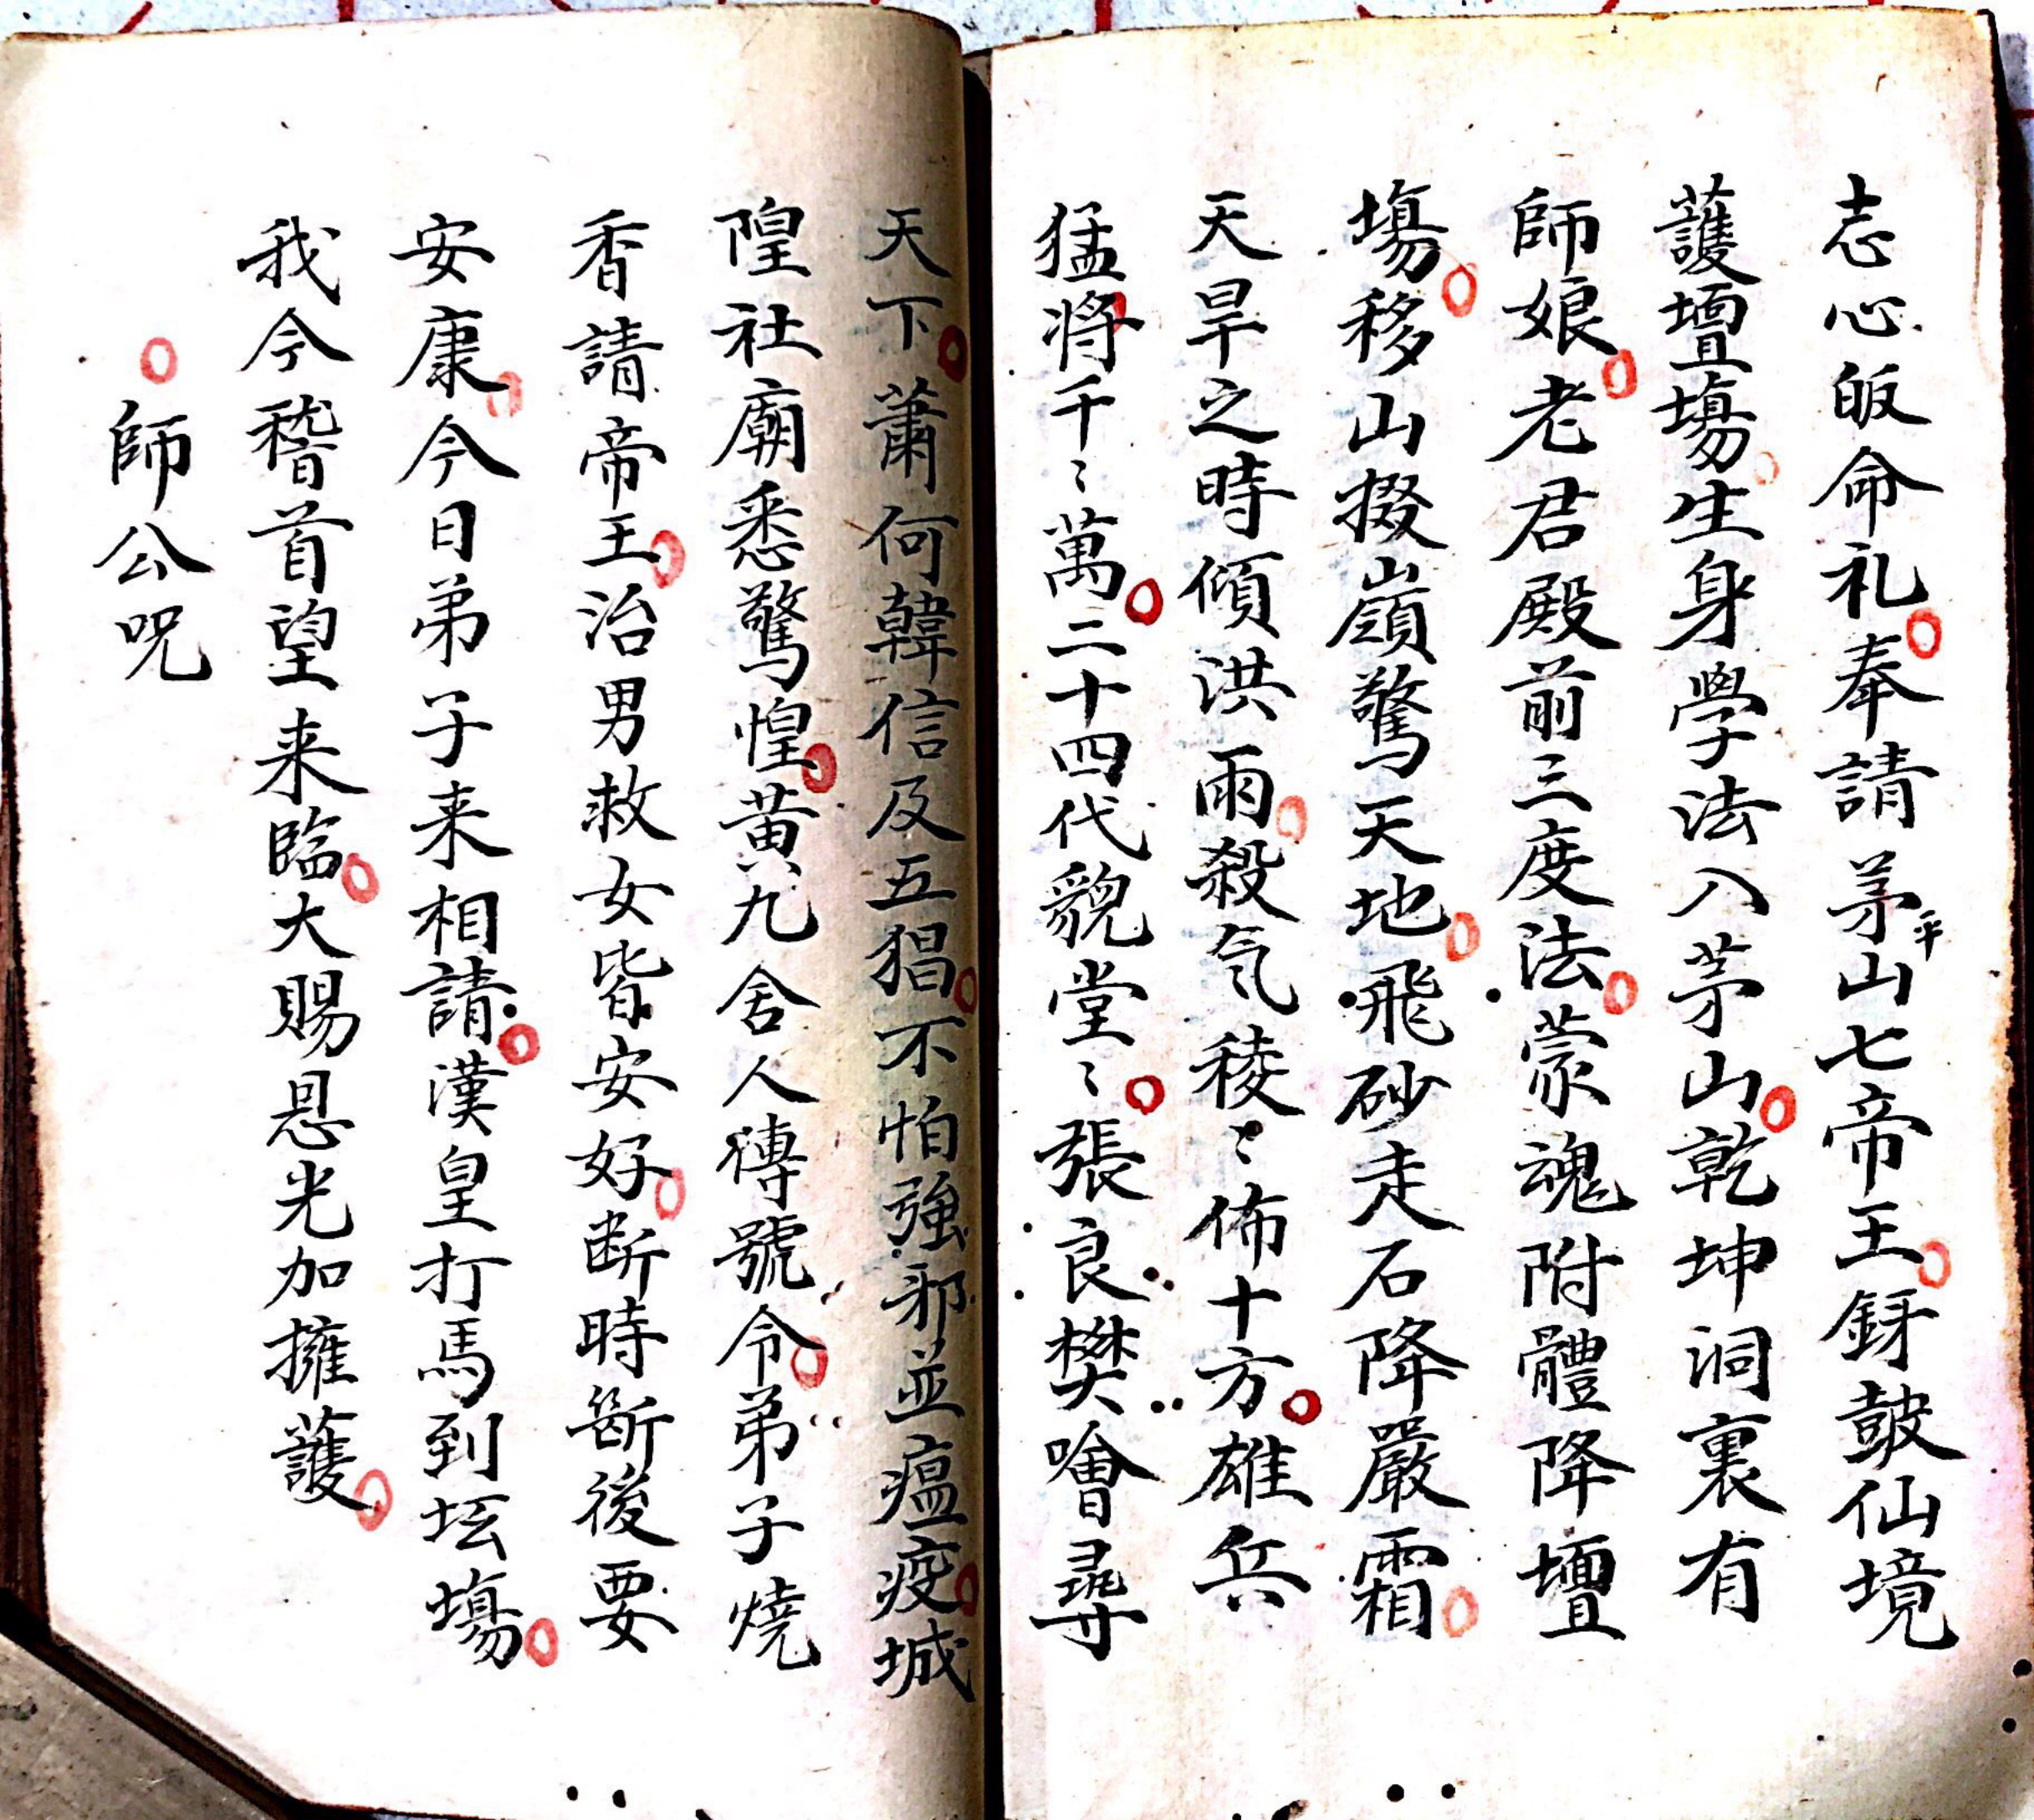 志心皈命礼奉請茅平山七帝王鈝皷仙境
護壇場生身學法入茅山乾坤洞裏有
師娘老君殿前三度法蒙魂附體降壇
場移山掇嶺驚天地飛砂走石降嚴霜
天旱之時傾洪雨殺气稜〻佈十方雄兵
猛将千〻萬二十四代貌堂〻張良樊噲尋
天下蕭何韓信及五猖不怕強邪並瘟疫城
隍社廟悉驚惶黃九舍人傳號令弟子燒
香請帝王治男救女皆安好断時斷後要
安康今日弟子来相請漢皇打馬到坛場
我今稽首望来臨大賜恩光加擁護
師公咒